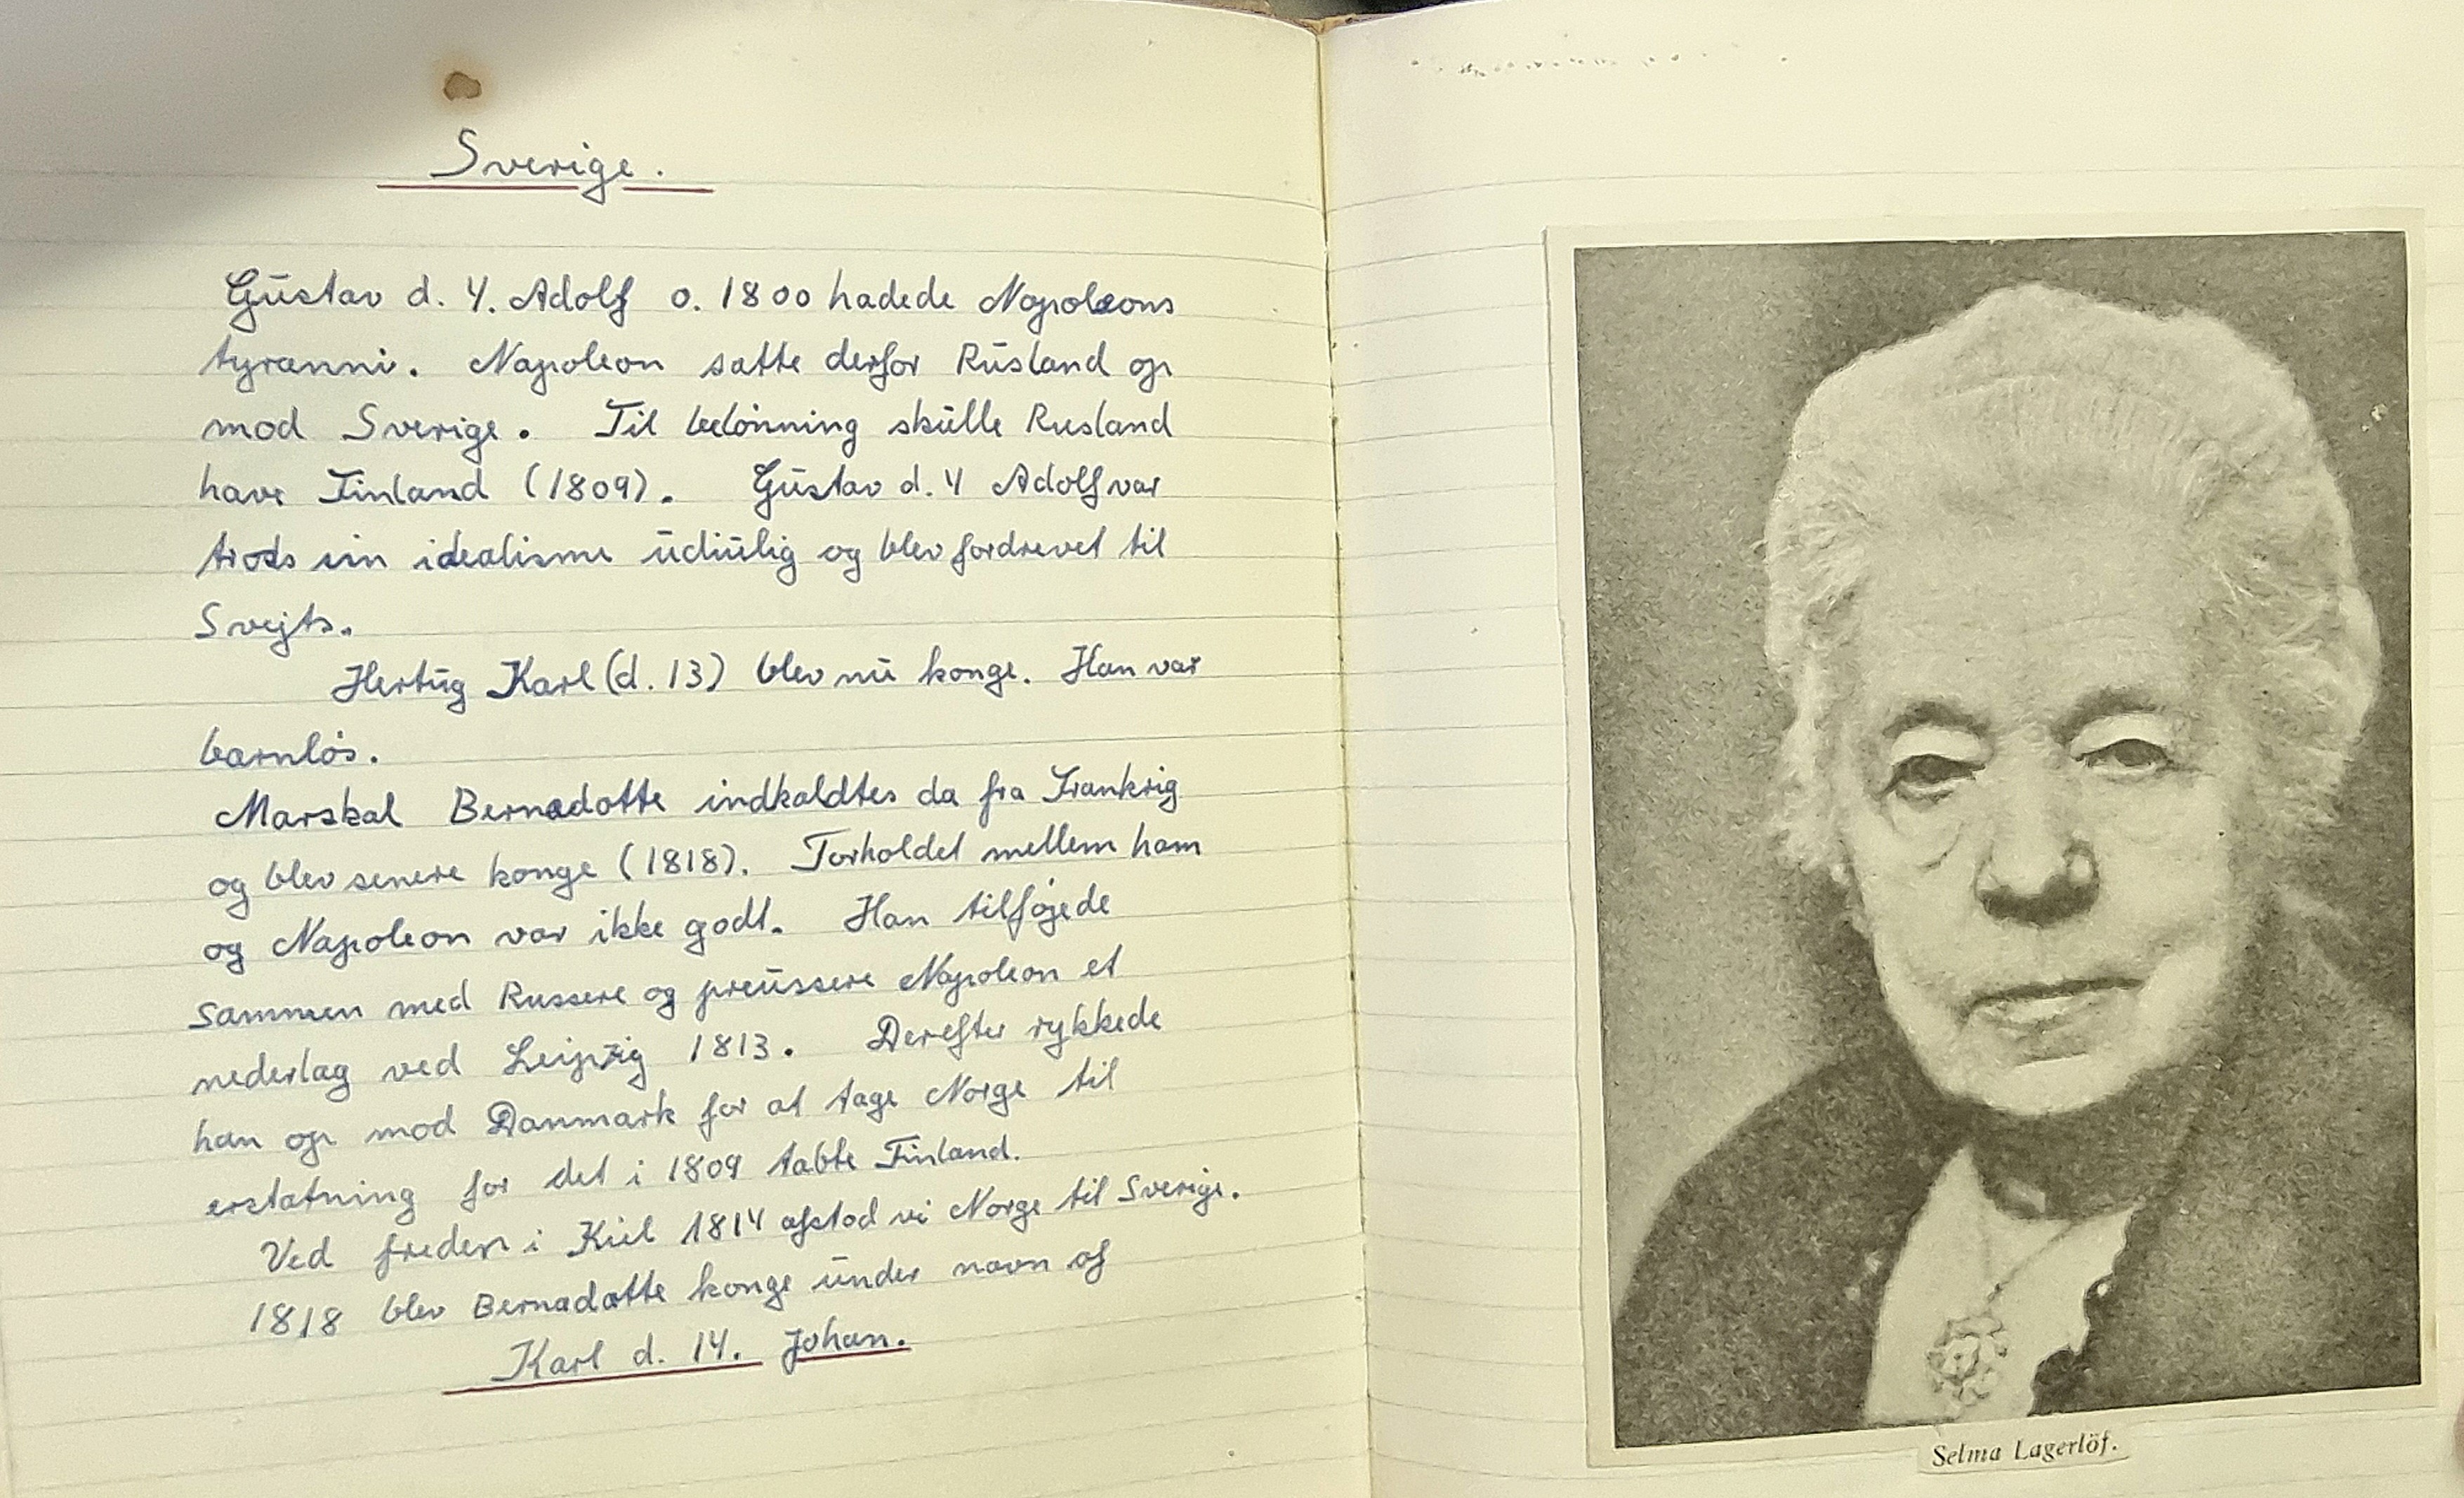 Sverige.
Gustav d. 4. Adolf o. 1800 hadede Napoleons
tyranni. Napoleon satte derfor Rusland op
mod Sverige. Til belønning skulle Rusland
have Finland (1809). Gustav d. 4 Adolf var
trods sin idealisme uduelig og blev fordrevet til
Svejts.
Hertug Karl (d. 13) blev nu konge. Han var
barnløs.
Marskal Bernadotte indkaldtes da fra Frankrig
og blev senere konge (1818). Forholdet mellem ham
og Napoleon var ikke godt. Han tilføjede
sammen med Russere og preussere Napoleon et
nederlag ved Leipzig 1813. Derefter rykkede
han op mod Danmark for at tage Norge til
erstatning for det i 1809 tabte Finland.
Ved freden i Kiel 1814 afstod vi Norge til Sverige.
1818 blev Bernadotte konge under navn af
Karl d. 14. Johan.
Selma Lagerlöf.